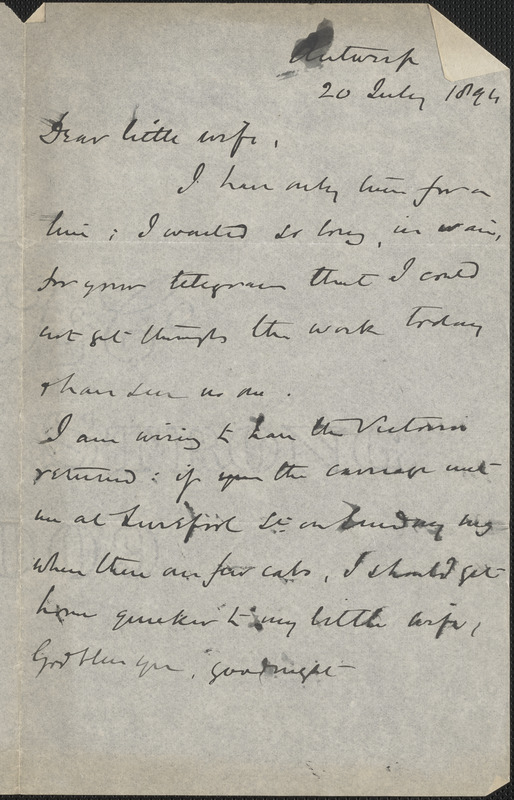 Antwerp
20 July 1894
Dear little wife,
I have only time for a
line; I waited so long, in vain,
for your telegram that I could
not get through the work today
& have seen no one.
I am wiring to have the Victoria
returned: if you the carriage met
me at St on Sunday
when there are few cabs, I should get
home quicker to my little wife,
God bless you, goodnight